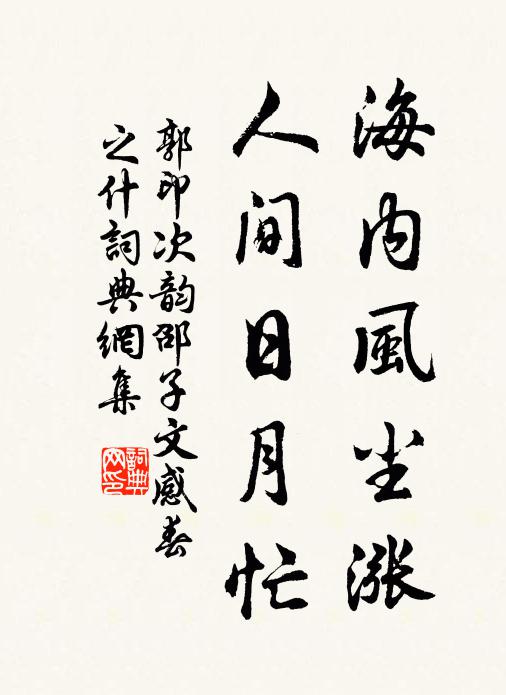 海内風尘漲
人间日月忙
郭印次韵邵子文感春
之什詞典網集
詞典网印